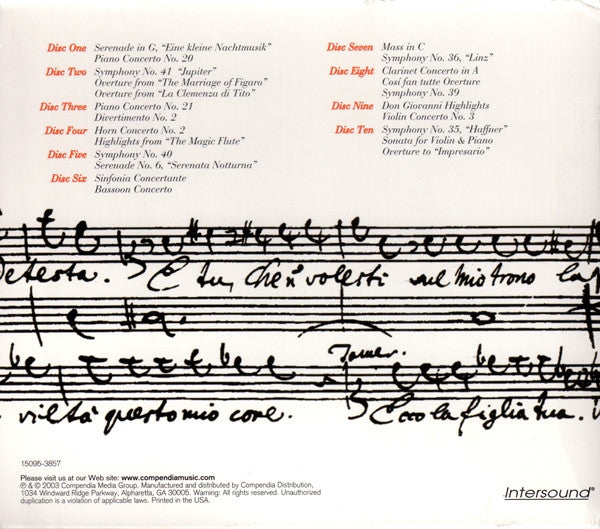 Disc One Serenade in G, "Eine kleine Nachtmusik"
Piano Concerto No. 20
Disc Two Symphony No. 41 "Jupiter"
Overture from "The Marriage of Figaro"
Overture from "La Clemenza di Tito"
Disc Three Piano Concerto No. 21
Divertimento No. 2
Disc Four Horn Concerto No. 2
Highlights from "The Magic Flute"
Disc Five Symphony No. 40
Serenade No. 6, "Serenata Notturna"
Disc Six Sinfonia Concertante
Bassoon Concerto
Disc Seven Mass in C
Symphony No. 36, "Linz"
Disc Eight Clarinet Concerto in A
Cosí fan tutte Overture
Symphony No. 39
Disc Nine Don Giovanni Highlights
Violin Concerto No. 3
Disc Ten Symphony No. 35, "Haffner"
Sonata for Violin & Piano
Overture to "Impresario"
Detesta. E tu, che n' volesti sul mio trono la
viltà questo mio core. Ecco la figlia tua.
15095-3857
Please visit us at our Web site: www.compendiamusic.com
℗ & © 2003 Compendia Media Group. Manufactured and distributed by Compendia Distribution,
1034 Windward Ridge Parkway, Alpharetta, GA 30005. Warning: All rights reserved. Unauthorized
duplication is a violation of applicable laws. Printed in the USA.
Intersound®